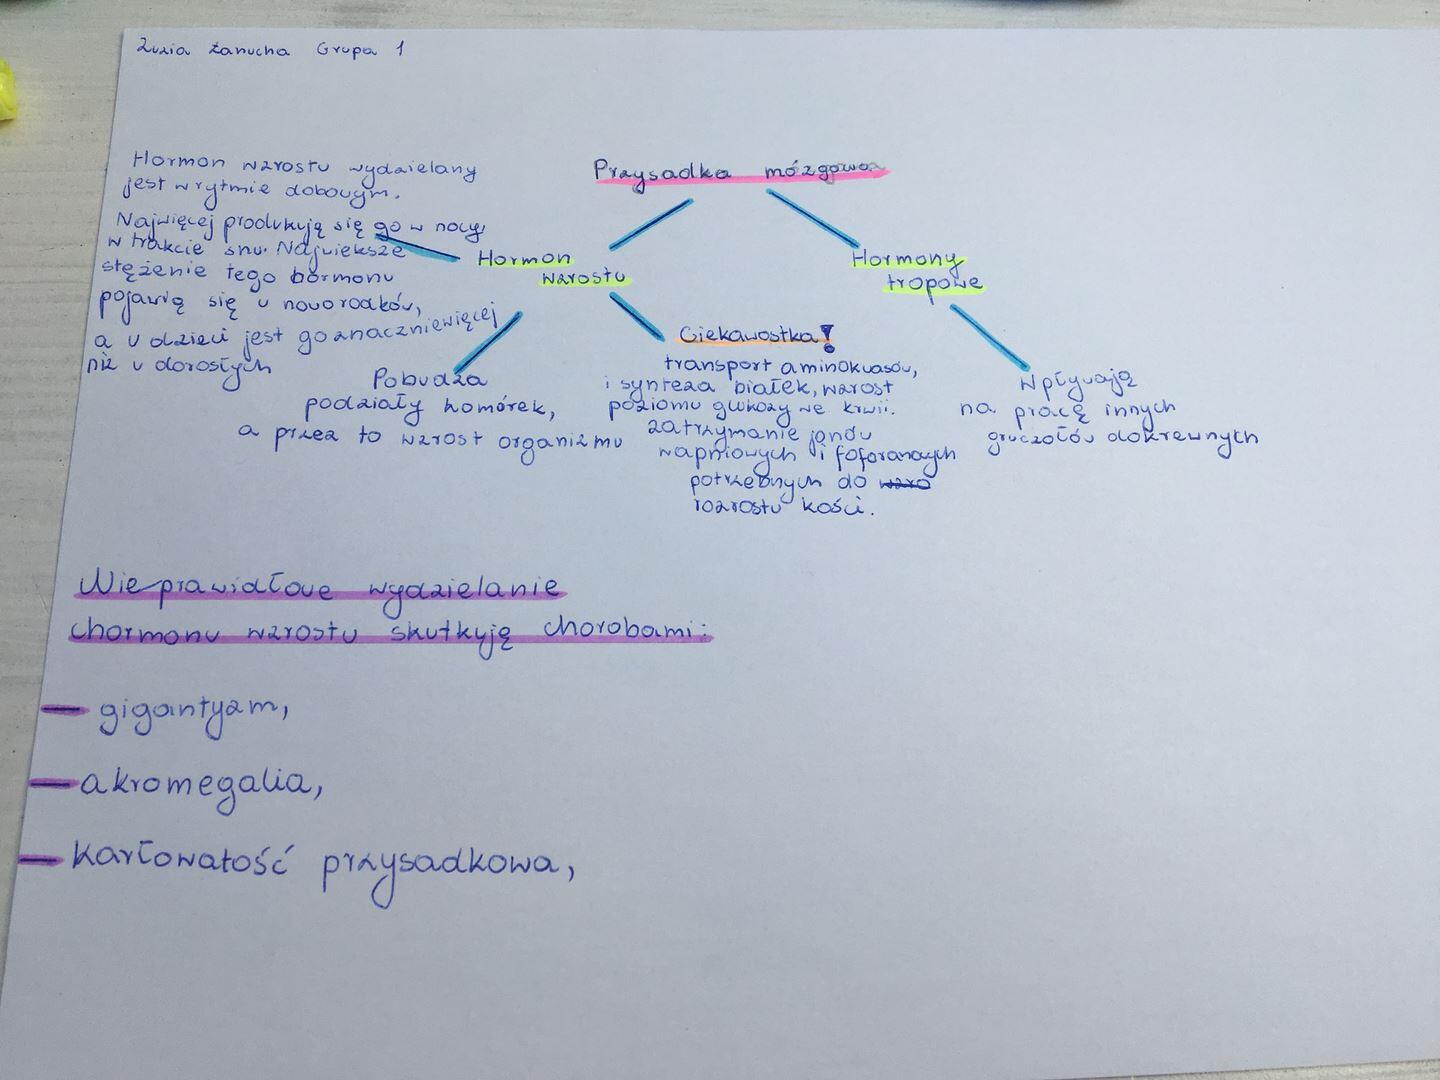 Zuzia Łanucha Grupa 1
Przysadka mózgowa
Hormon wzrostu wydzielany
jest w rytmie dobowym.
Najwięcej produkują się go w nocy,
w trakcie snu. Największe
stężenie tego hormonu
pojawią się u noworodków,
a u dzieci jest go znacznie więcej
niż u dorosłych
Hormon
wzrostu
Pobudza
podziały komórek,
a przez to wzrost organizmu
Ciekawostka!
transport aminokwasów,
i synteza białek, wzrost
poziomu glukozy we krwii.
zatrzymanie jonów
wapniowych i foforanowych
potrzebnych do wzro
rozrostu kości.
Hormony
tropowe
Wpływają
na pracę innych
gruczołów dokrewnych
Nieprawidłowe wydzielanie
chormonu wzrostu skutkyją chorobami:
— gigantyzm,
— akromegalia,
— Karłowatość przysadkowa,